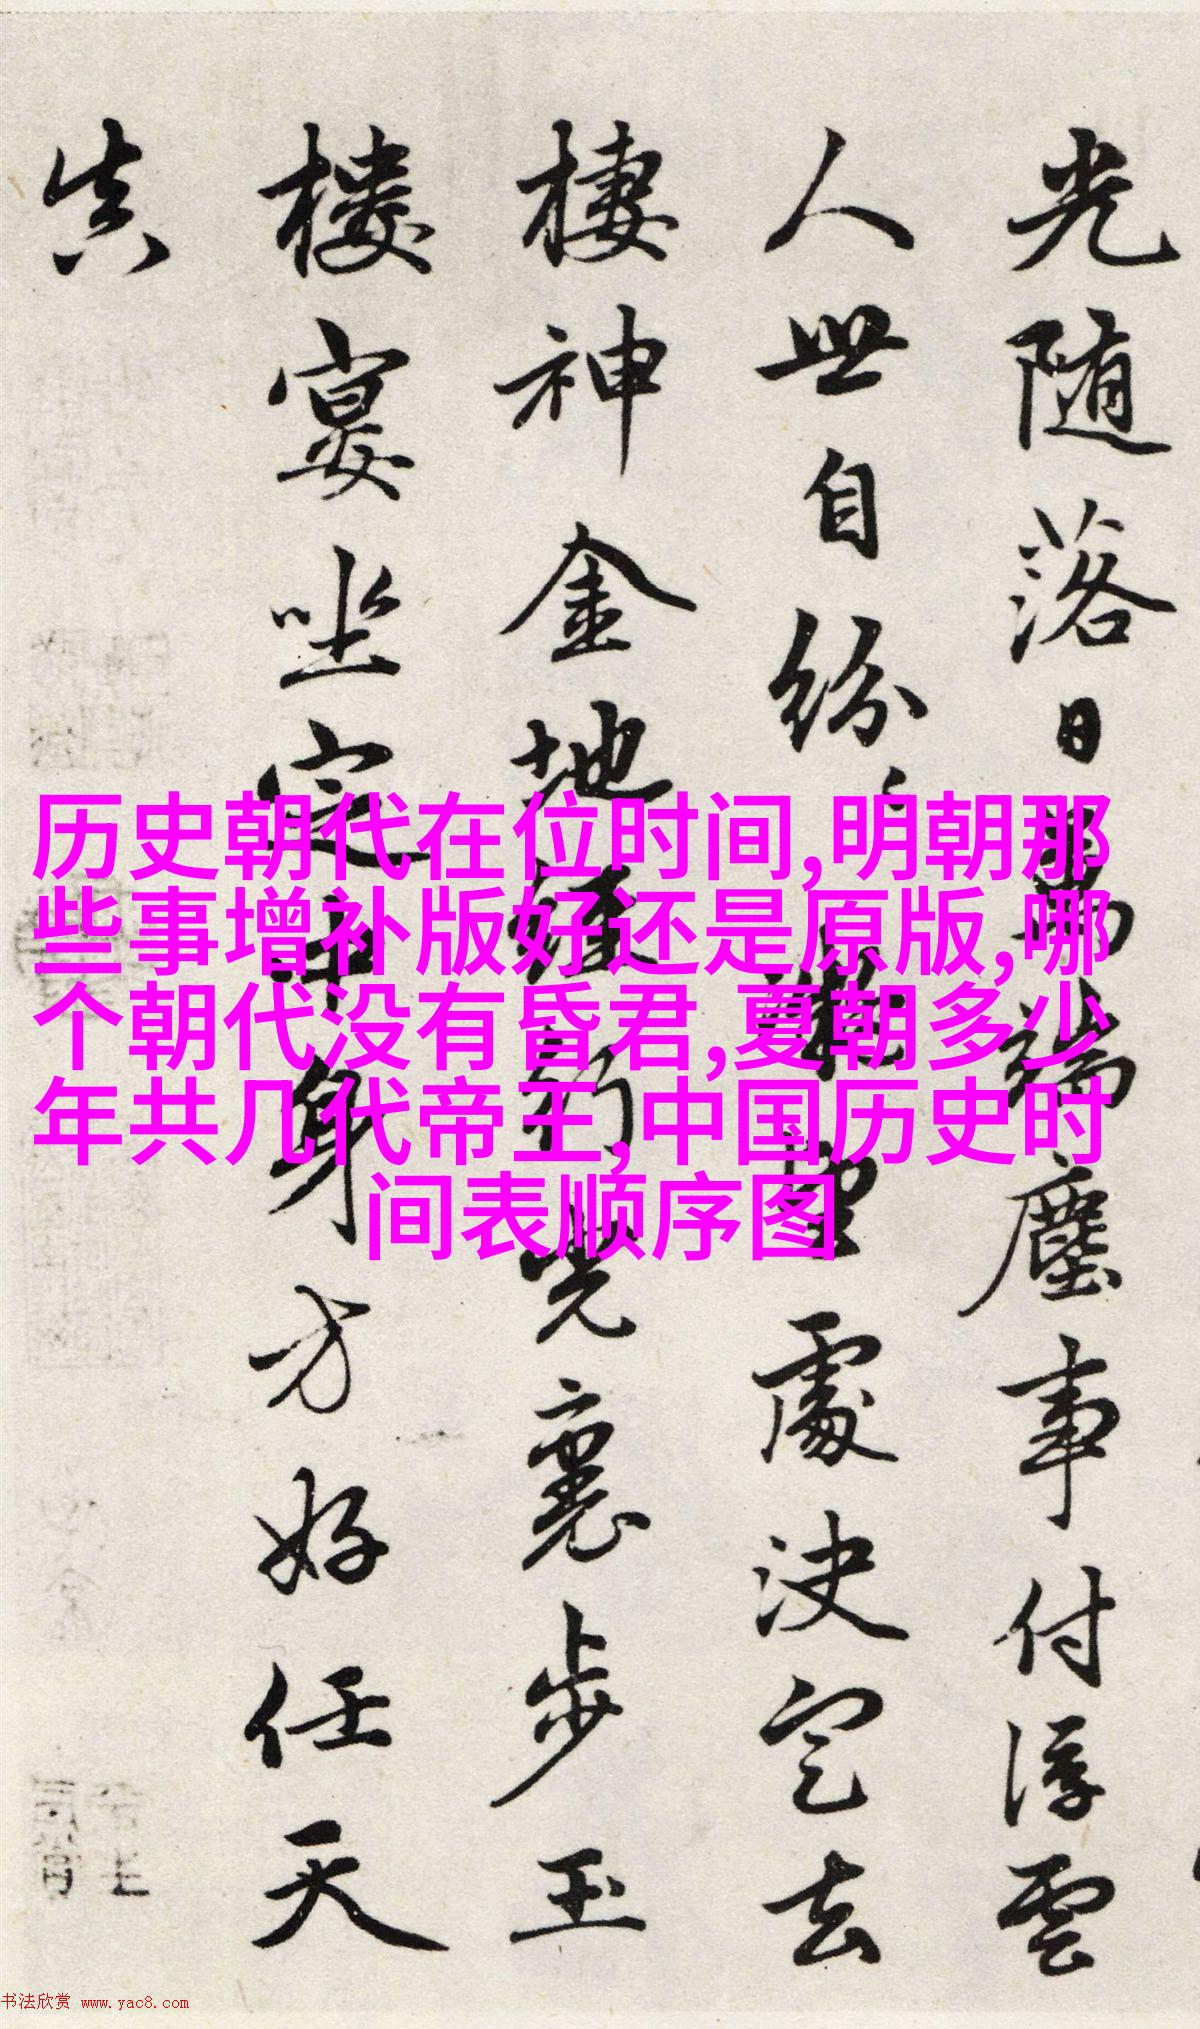 光随落日萬端塵事付浮雲
人世自紛〻望處決定去
棲神金地經行光裏步玉
樓宴坐定中身方好任天
真
历史朝代在位时间,明朝那
些事增补版好还是原版,哪
个朝代没有昏君,夏朝多少
年共几代帝王,中国历史时
间表顺序图
书法欣赏 www.yac8.com